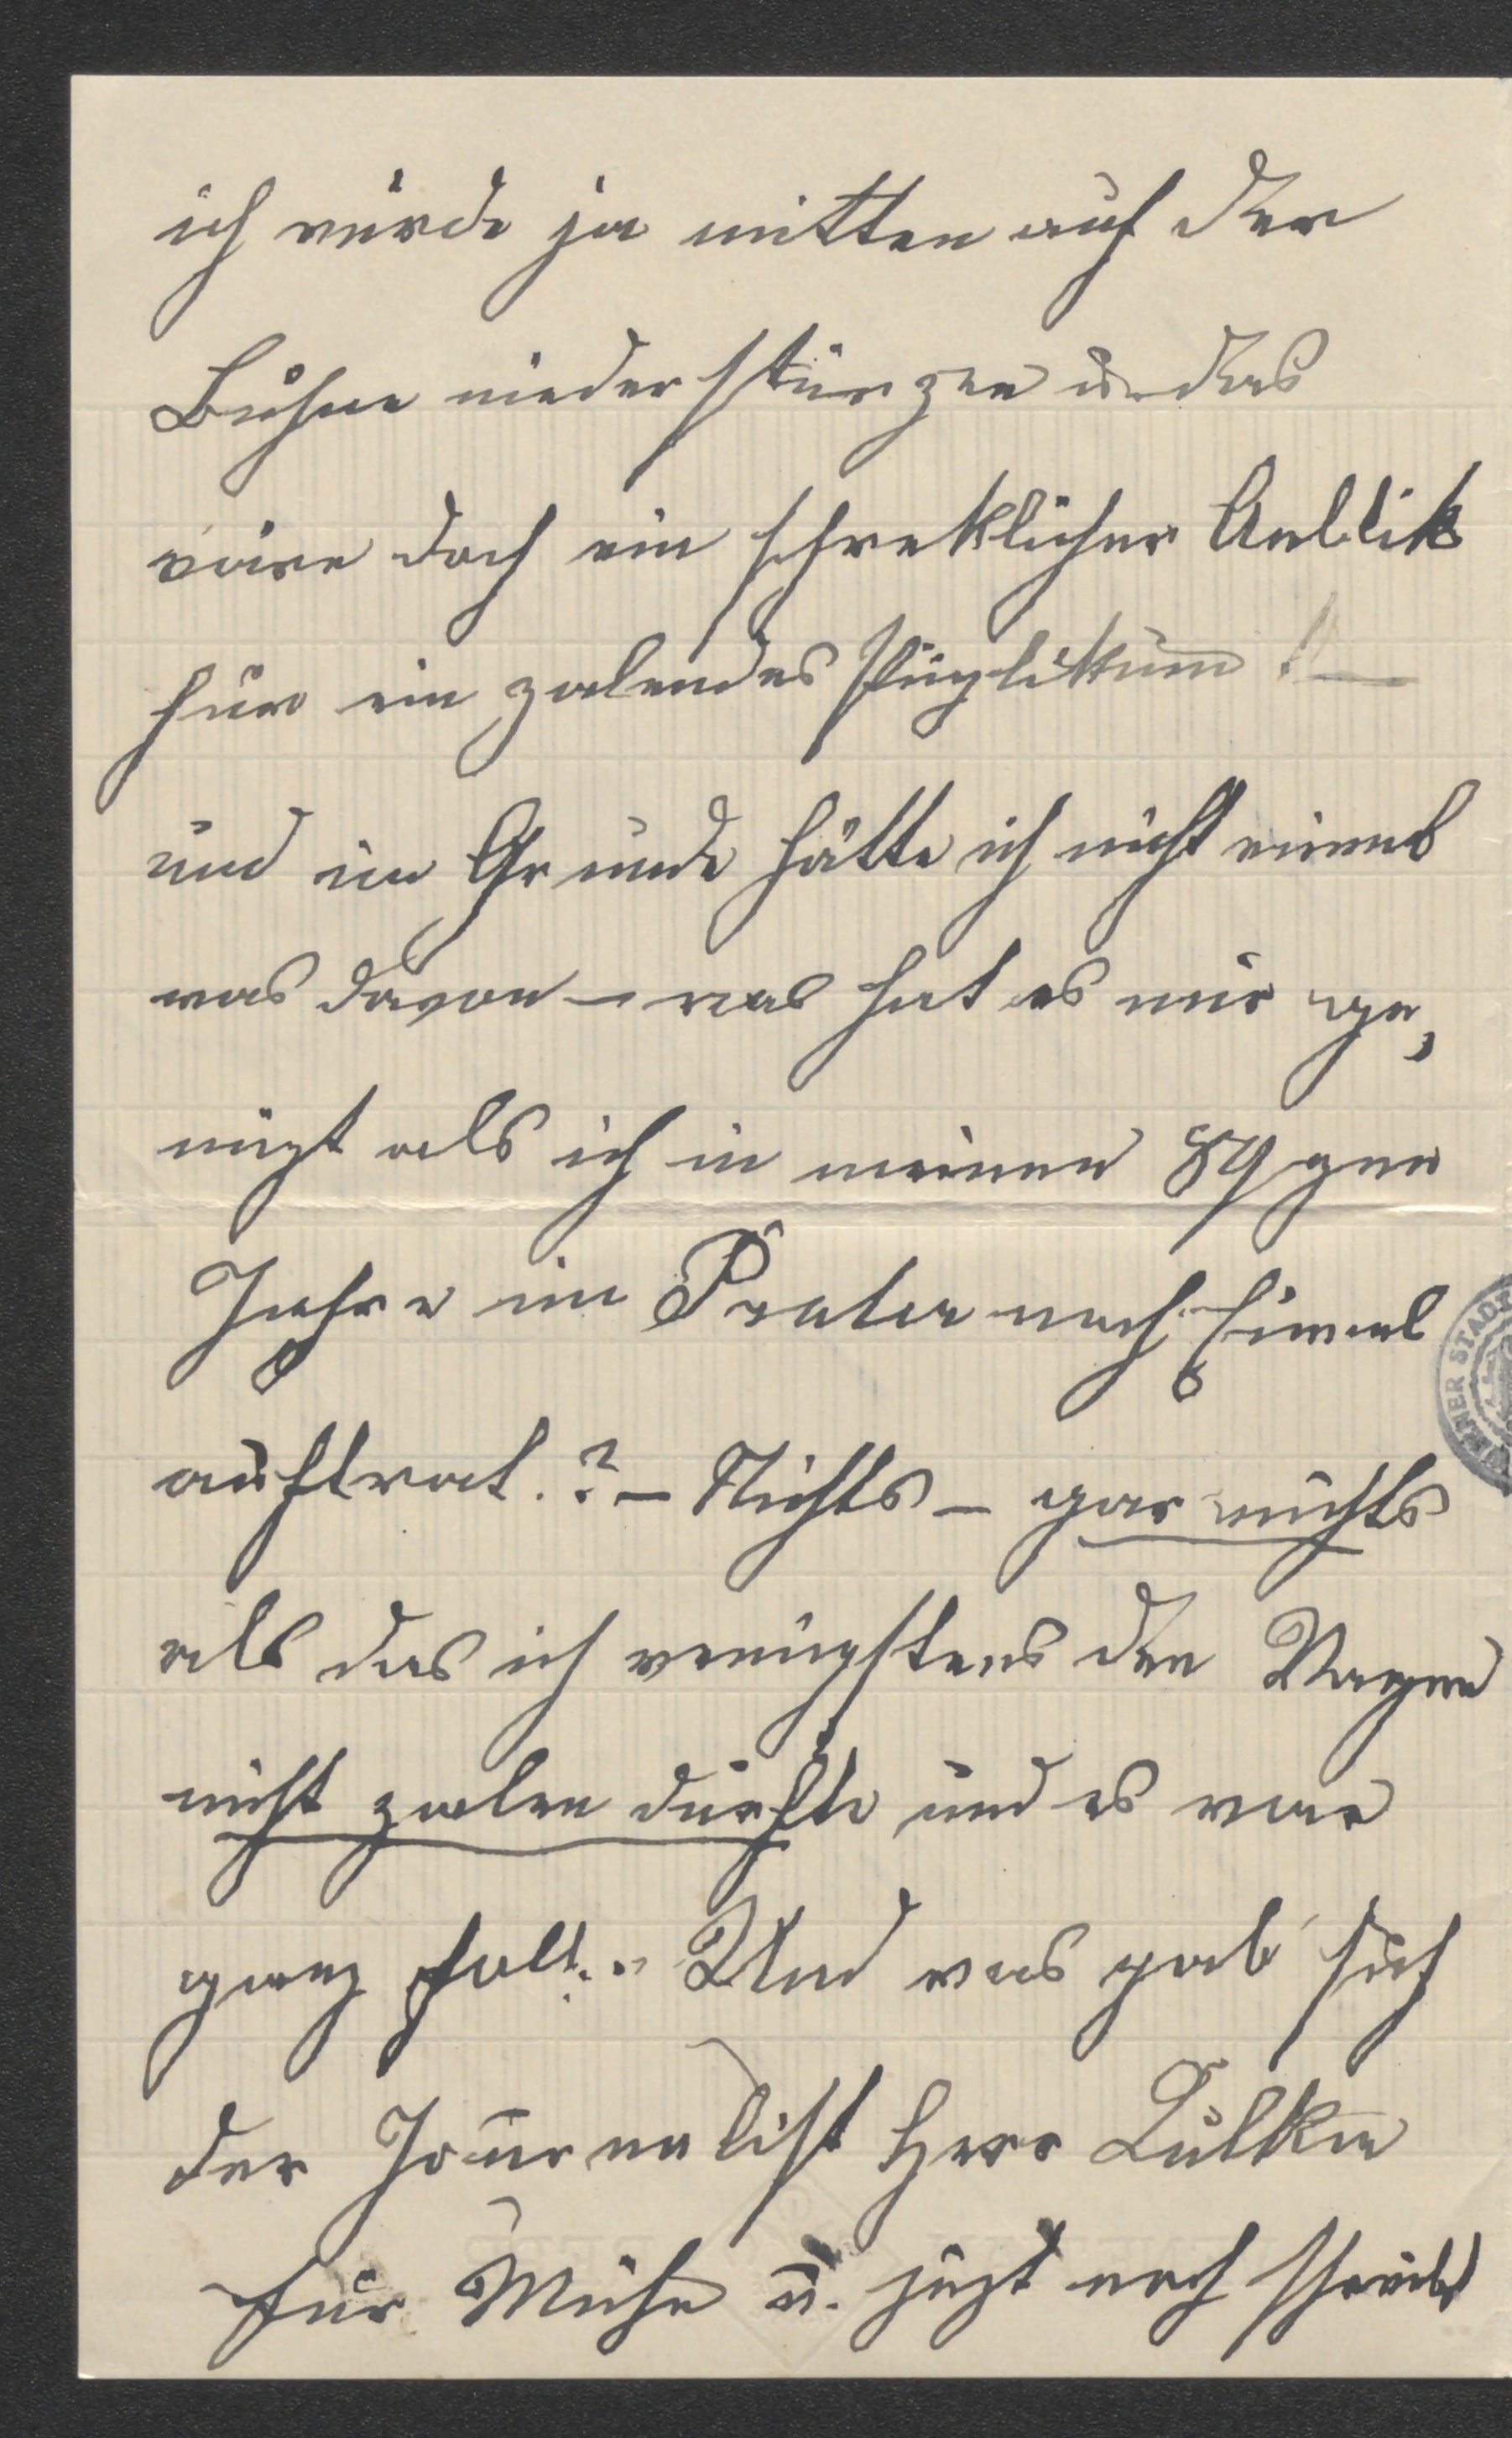 ich würde ja mitten auf der
Bühne niederstürzen u das
wäre doch ein schreklicher Anblik
für ein zalendes Puplikum! —
und im Grunde hätte ich nicht einmal
was davon – was hat es mir ge,
nüzt als ich in meinen 89gen
Jahre im Prater noch Einmal
auftrat.? – Nichts – gar nichts
als das ich wenigstens den Wagen
nicht zalen durfte und es war
ganz halb. Und was gab sich
der Journalist Herr
für Mühe u. jezt noch schreibt
WIENER STADT